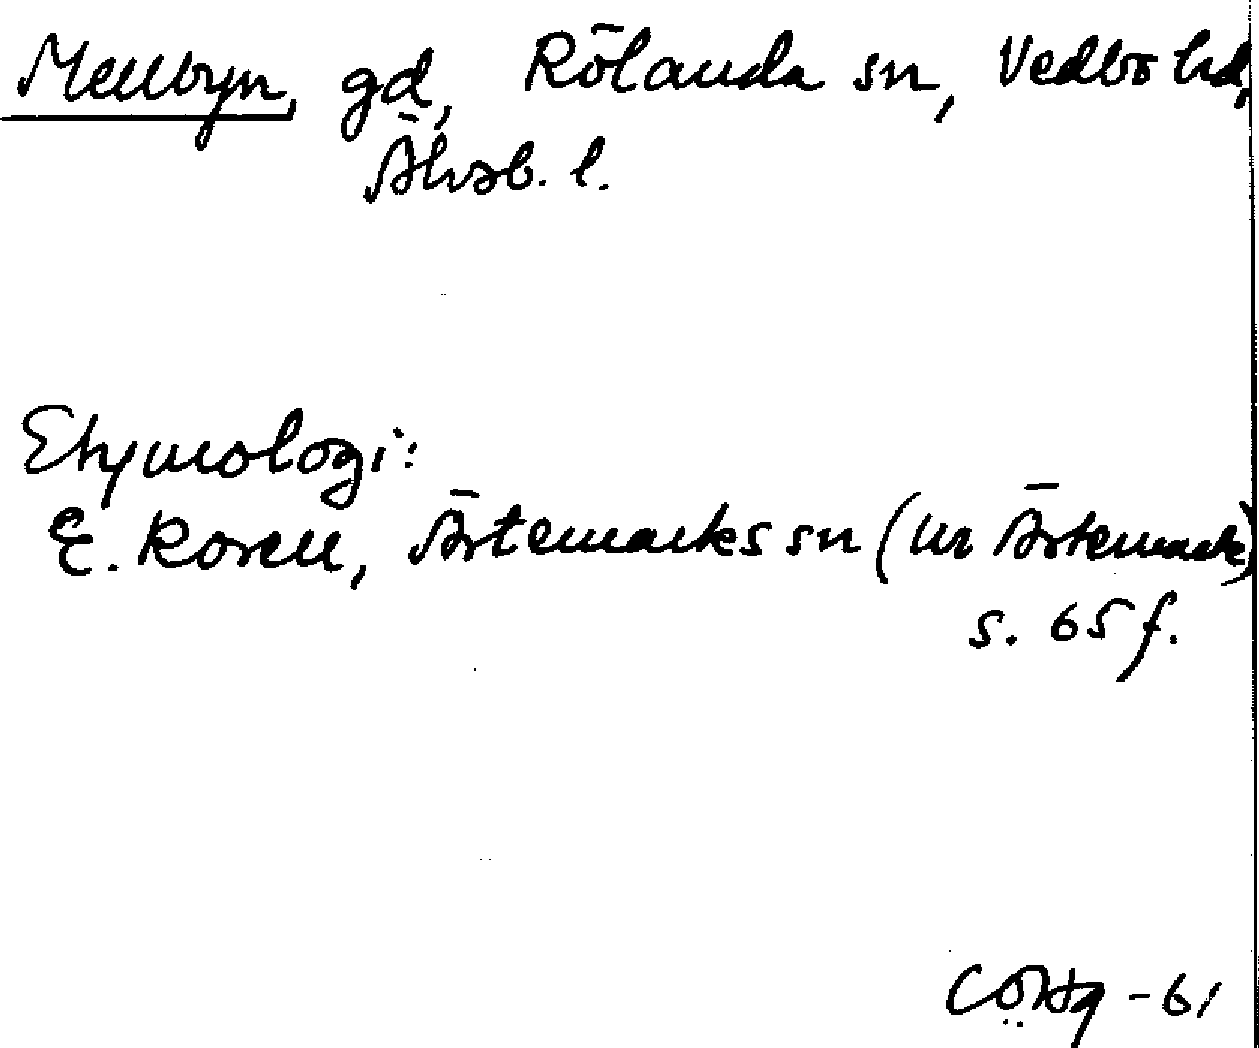 Mellbyn, gd, Rölanda sn, Vedbo hd,
Älvsb. l.
Etymologi:
E. Rosell, Ärtemarks sn (ur Ärtemark)
s. 65 f.
-61